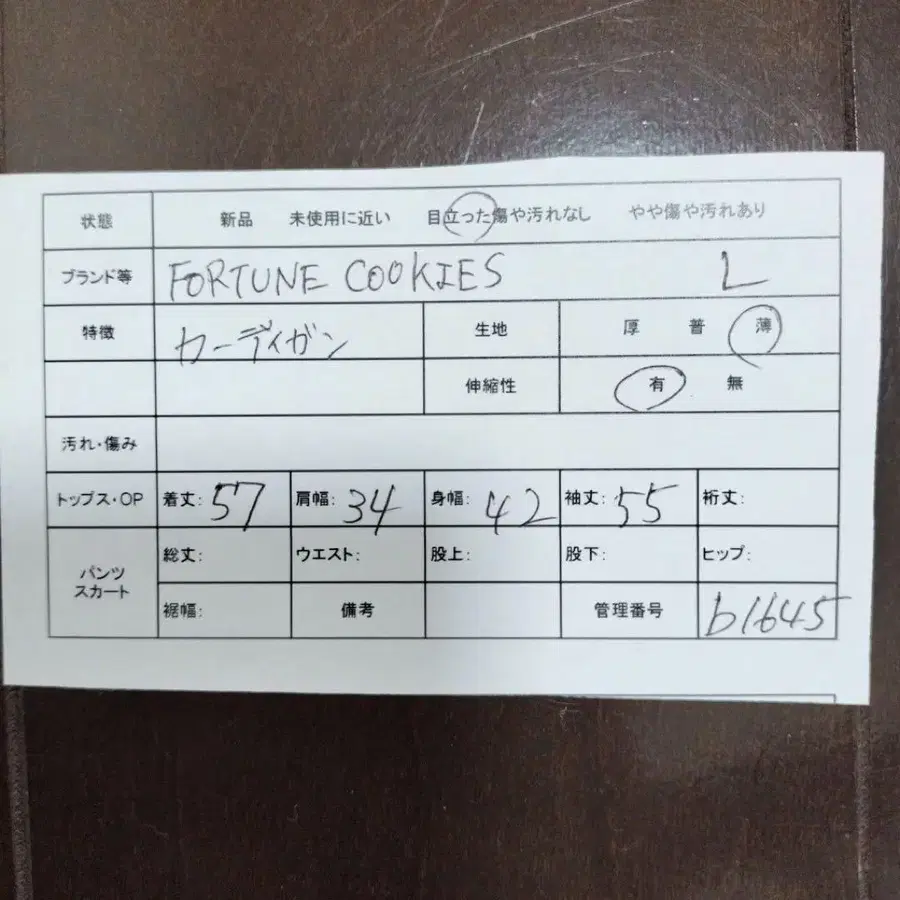 状態 新品 未使用に近い 目立った傷や汚れなし やや傷や汚れあり
ブランド等 FORTUNE COOKIES L
特徴 カーディガン 生地 厚 普 薄
伸縮性 有 無
汚れ・傷み
トップス・OP 着丈: 57 肩幅: 34 身幅: 42 袖丈: 55 裄丈:
パンツ スカート 総丈: ウエスト: 股上: 股下: ヒップ:
裾幅: 備考 管理番号 b1645